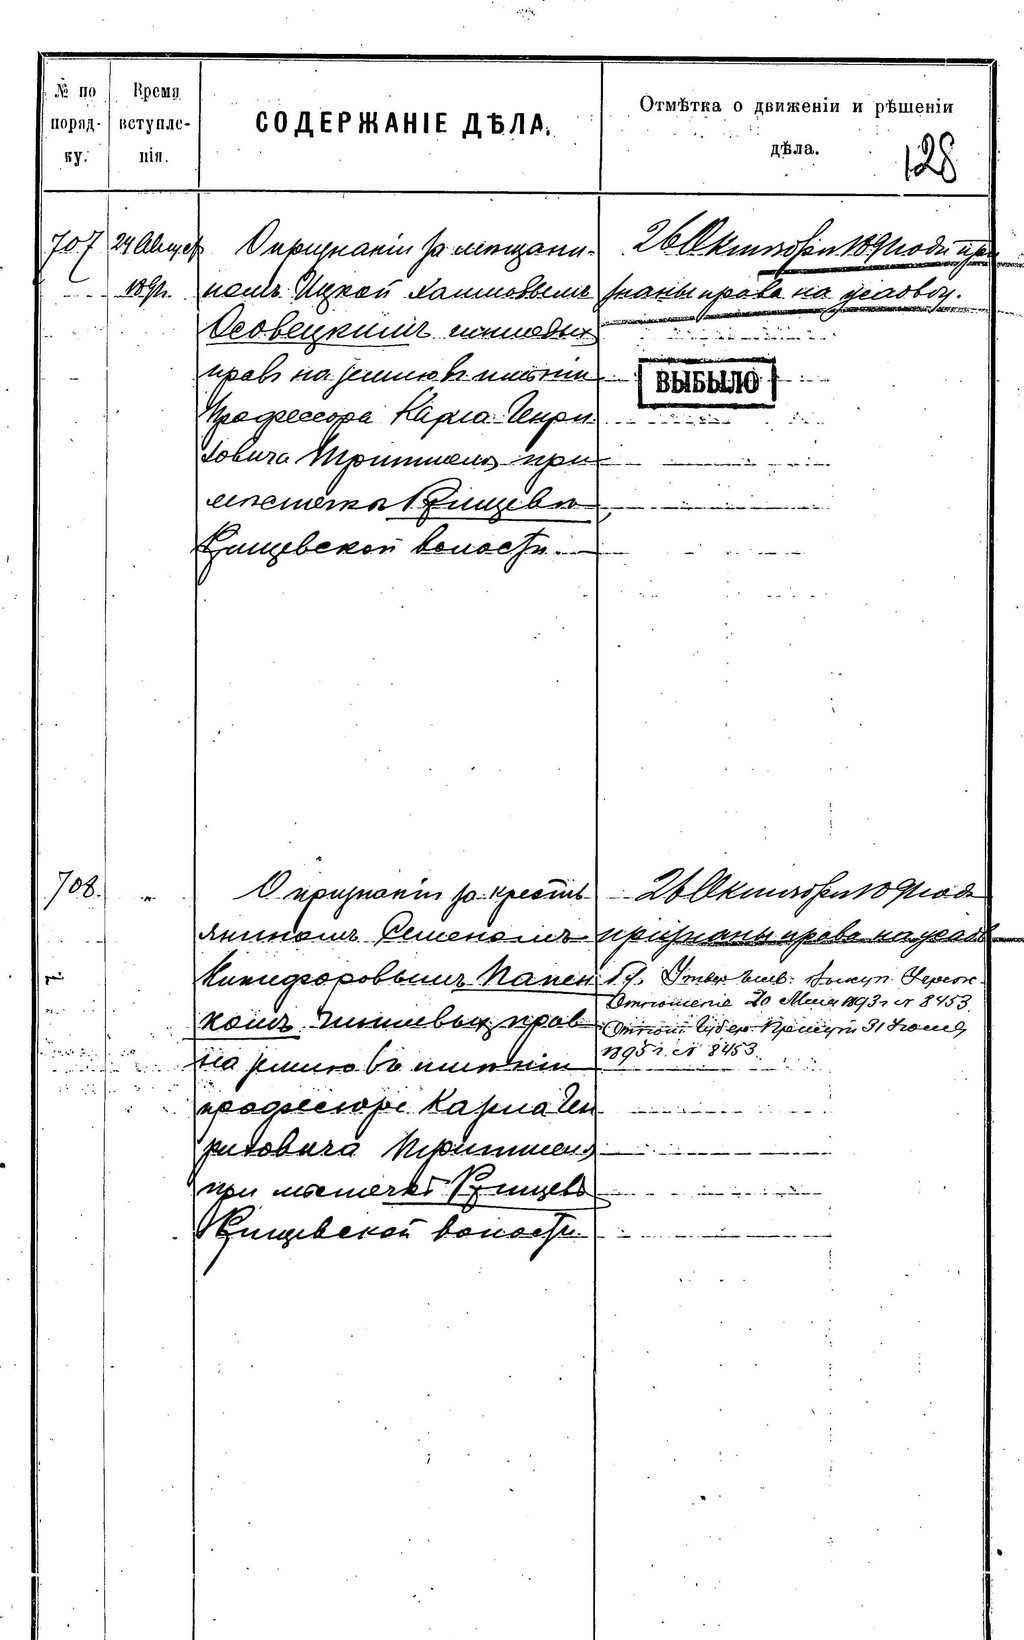 № по порядку.
Время вступленія.
СОДЕРЖАНІЕ ДѢЛА.
Отмѣтка о движеніи и рѣшеніи
дѣла.
128
707
24 Август
1891г.
О признаніи за мещани-
номъ Ицкой Хаимовымъ
Осовецкимъ чиншевых
правъ на землю въ имѣніи
Профессора Карла Генри
ховича Триттшеля при
местечкѣ Ржищевѣ
Ржищевской волости.
26 Октября 1891 года при
знаны права на усадьбу.
ВЫБЫЛО
708.
"
О признаніи за кресть
яниномъ Семеномъ
Никифоровымъ Папен
комъ чиншевых правъ
на землю въ имѣніи
профессора Карла Ген
риховича Триттшеля
при местечкѣ Ржищевѣ
Ржищевской волости.
26 Октября 1891 года
признаны права на усадьбу
Отношеніе 20 Мая 1893 г № 8453
Отнош. Губер. Присут 31
1895 г. № 8453.